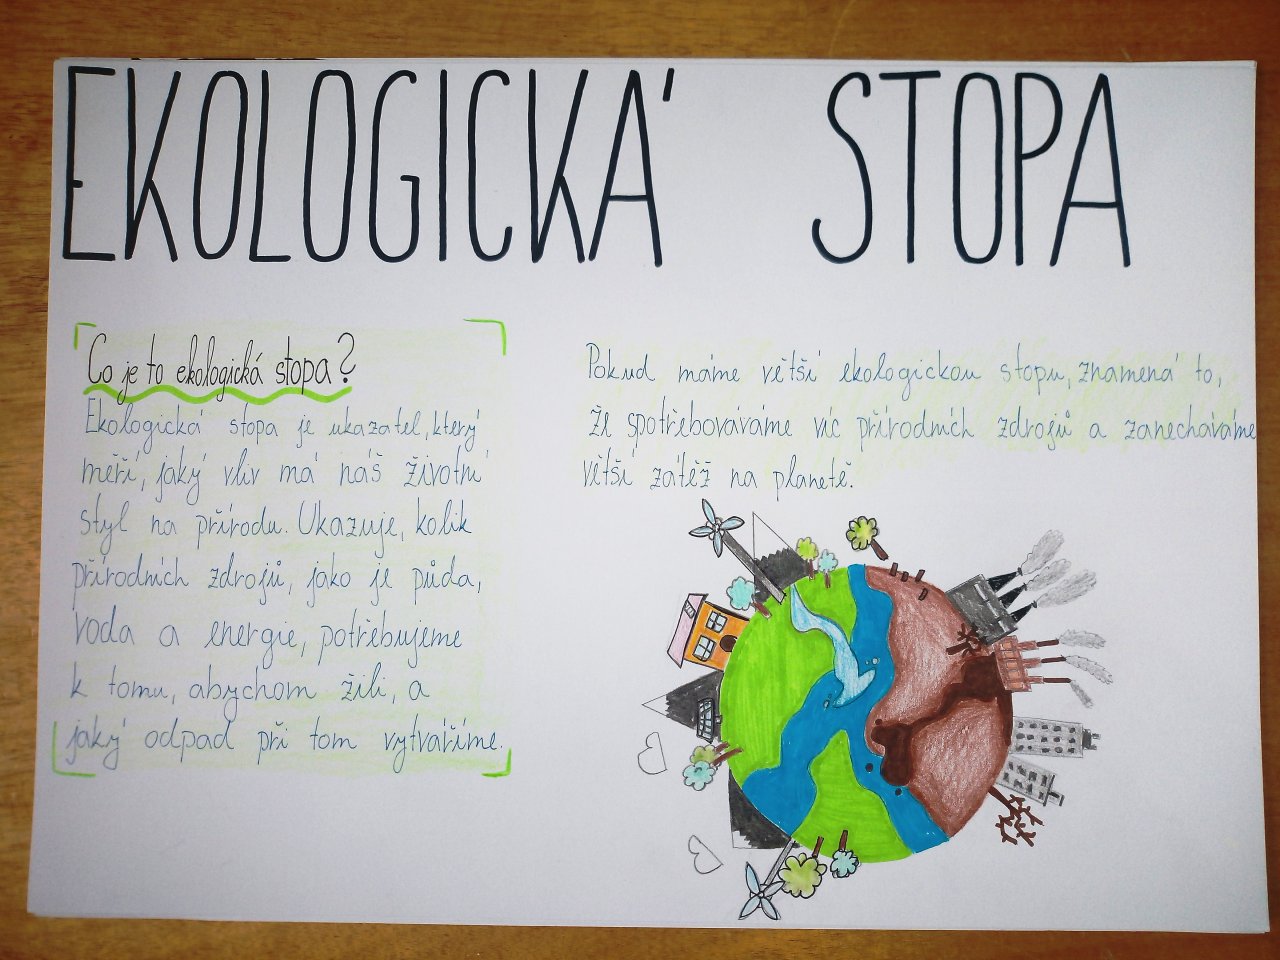 EKOLOGICKÁ STOPA
Co je to ekologická stopa?
Ekologická stopa je ukazatel, který
měří, jaký vliv má náš životní
styl na přírodu. Ukazuje, kolik
přírodních zdrojů, jako je půda,
voda a energie, potřebujeme
k tomu, abychom žili, a
jaký odpad při tom vytváříme.
Pokud máme větší ekologickou stopu, znamená to,
že spotřebováváme víc přírodních zdrojů a zanecháváme
větší zátěž na planetě.